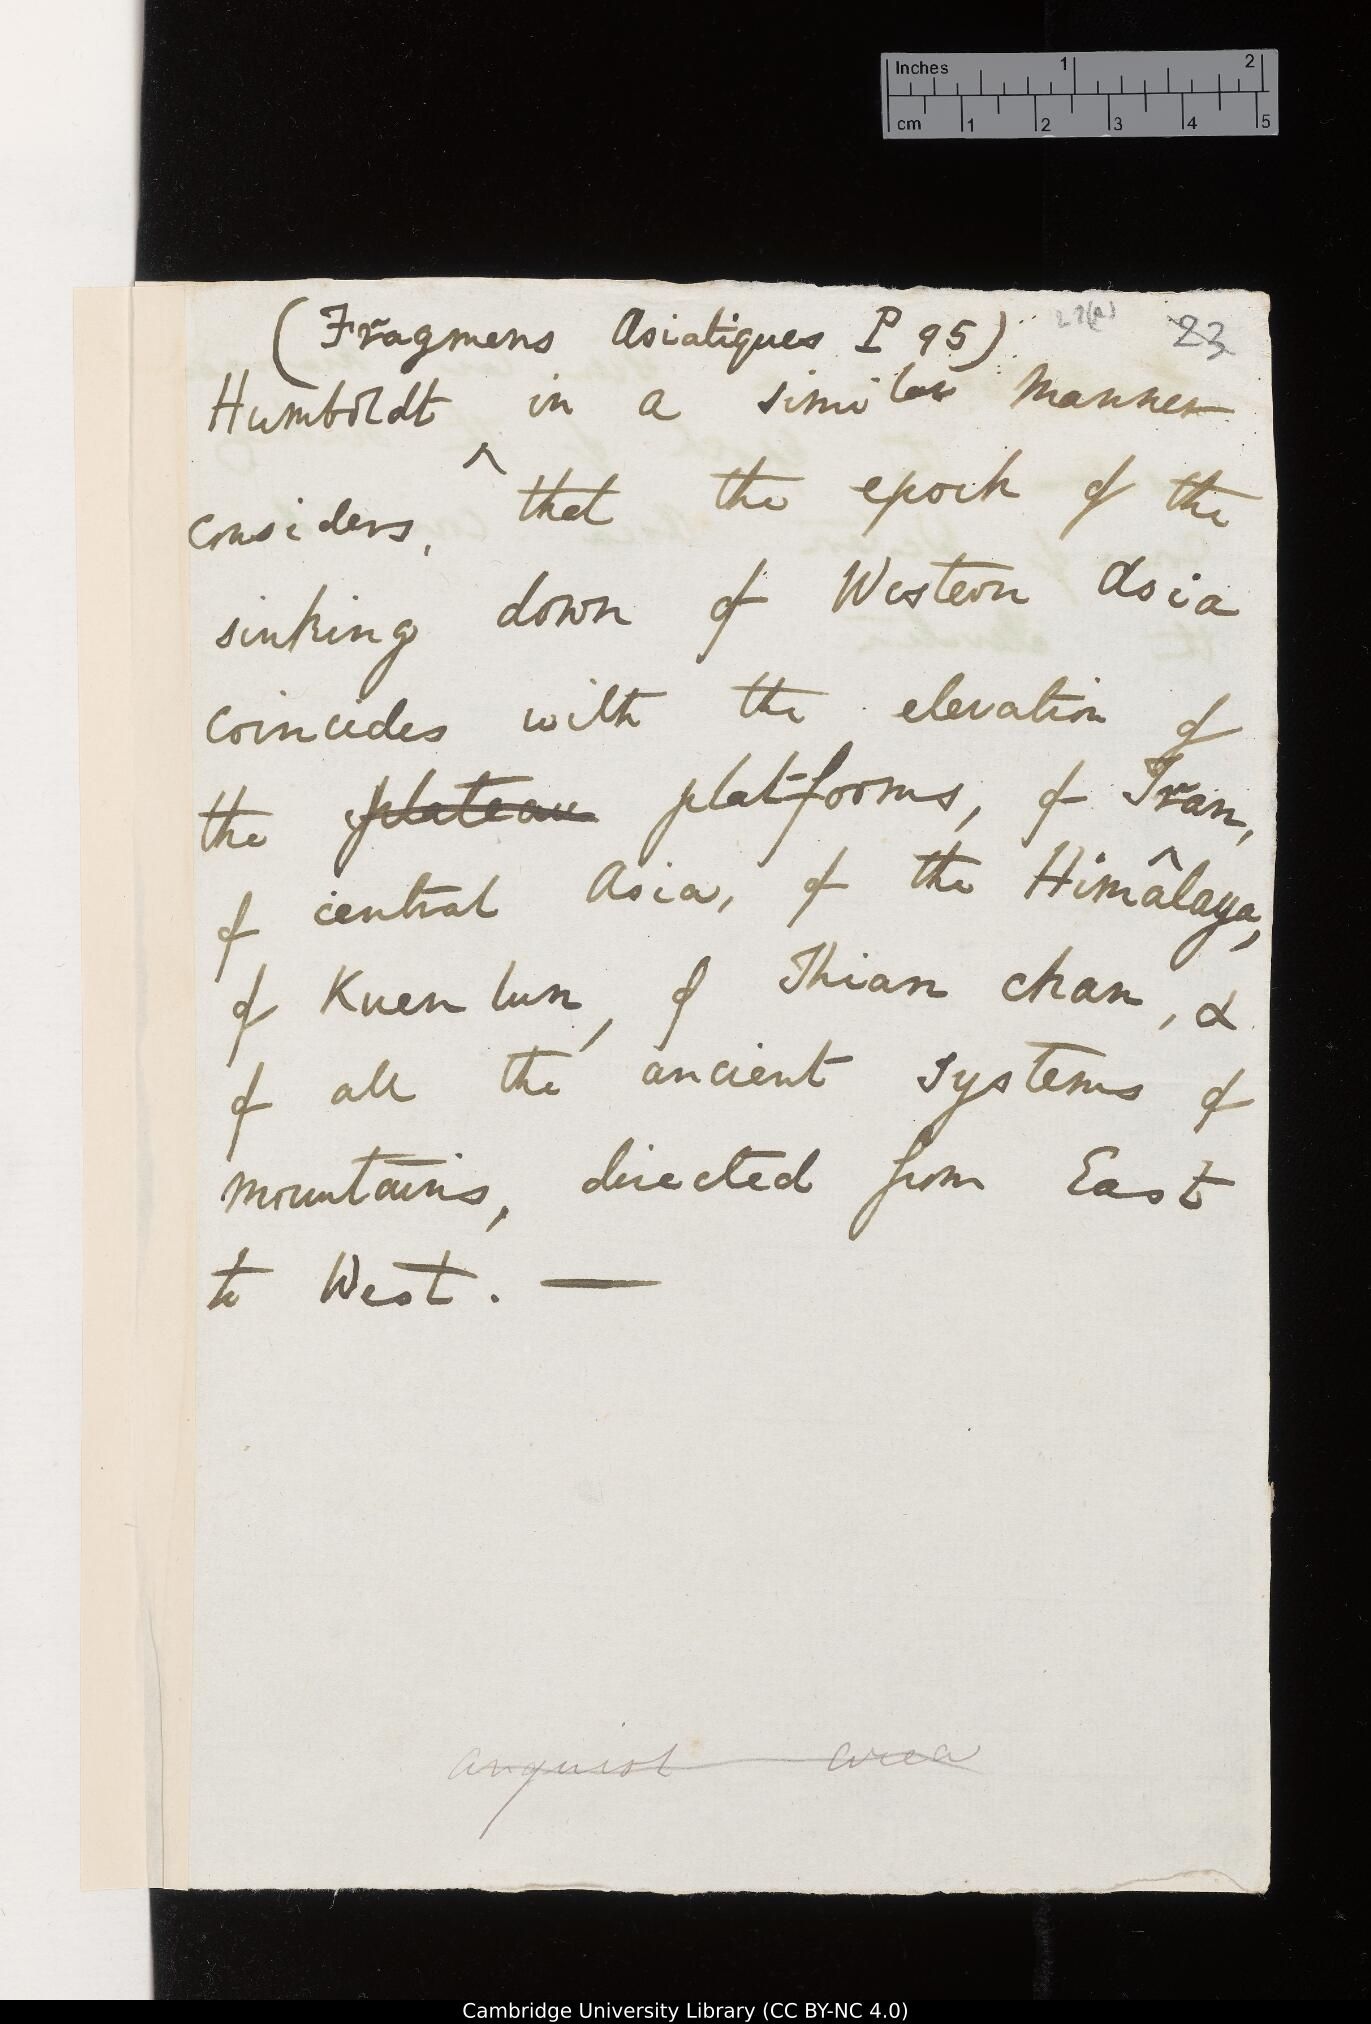 Inches 1 2
cm 1 2 3 4 5
(Fragmens Asiatiques P 95)
23
Humboldt in a similar manner
considers, ^ that the epoch of the
sinking down of Western Asia
coincides with the elevation of
the plateau plat-forms, of Iran,
of central Asia, of the Himâlaya,
of Kuen lun, of Thian chan, &
of all the ancient systems of
mountains, directed from East
to West. —
area
Cambridge University Library (CC BY-NC 4.0)